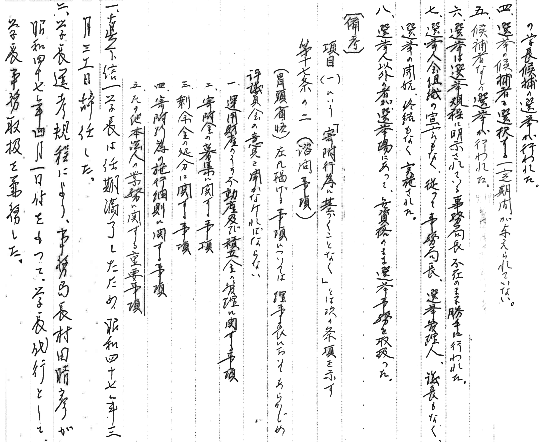 の学長候補選挙が行われた。
四 選挙候補者を選挙する一定期間が与えられていない。
五 候補者なしの選挙が行われた。
六 選挙は選挙規程に明示されている事務局長不在のまま勝手に行われた。
七 選挙人会組織の宣言もなく、従って事務局長、選挙管理人、議長もなく、
選挙の開始、終結もなく、実施された。
八、選挙人以外の者が選挙場にあって、無資格のまま選挙事務を取扱った。
(備考)
項目(一)という「寄附行為に基くことなく」とは次の条項を示す
第十六条の二 (諮問事項)
(冒頭省略) 左に掲げる事項については理事長においてあらかじめ
評議員会の意見を聞かなければならない
一 運用財産のうち不動産及び積立金の管理に関する事項
二 寄附金の募集に関する事項
三 剰余金の処分に関する事項
四 寄附行為の施行細則に関する事項
五 その他本法人の業務に関する重要事項
一 学長は任期満了したため 昭和四十七年三
月三十一日辞任した。
二 学長選考規程により、事務局長村田晴彦が
昭和四十七年四月一日付をもって学長代行として
学長事務取扱を兼務した。